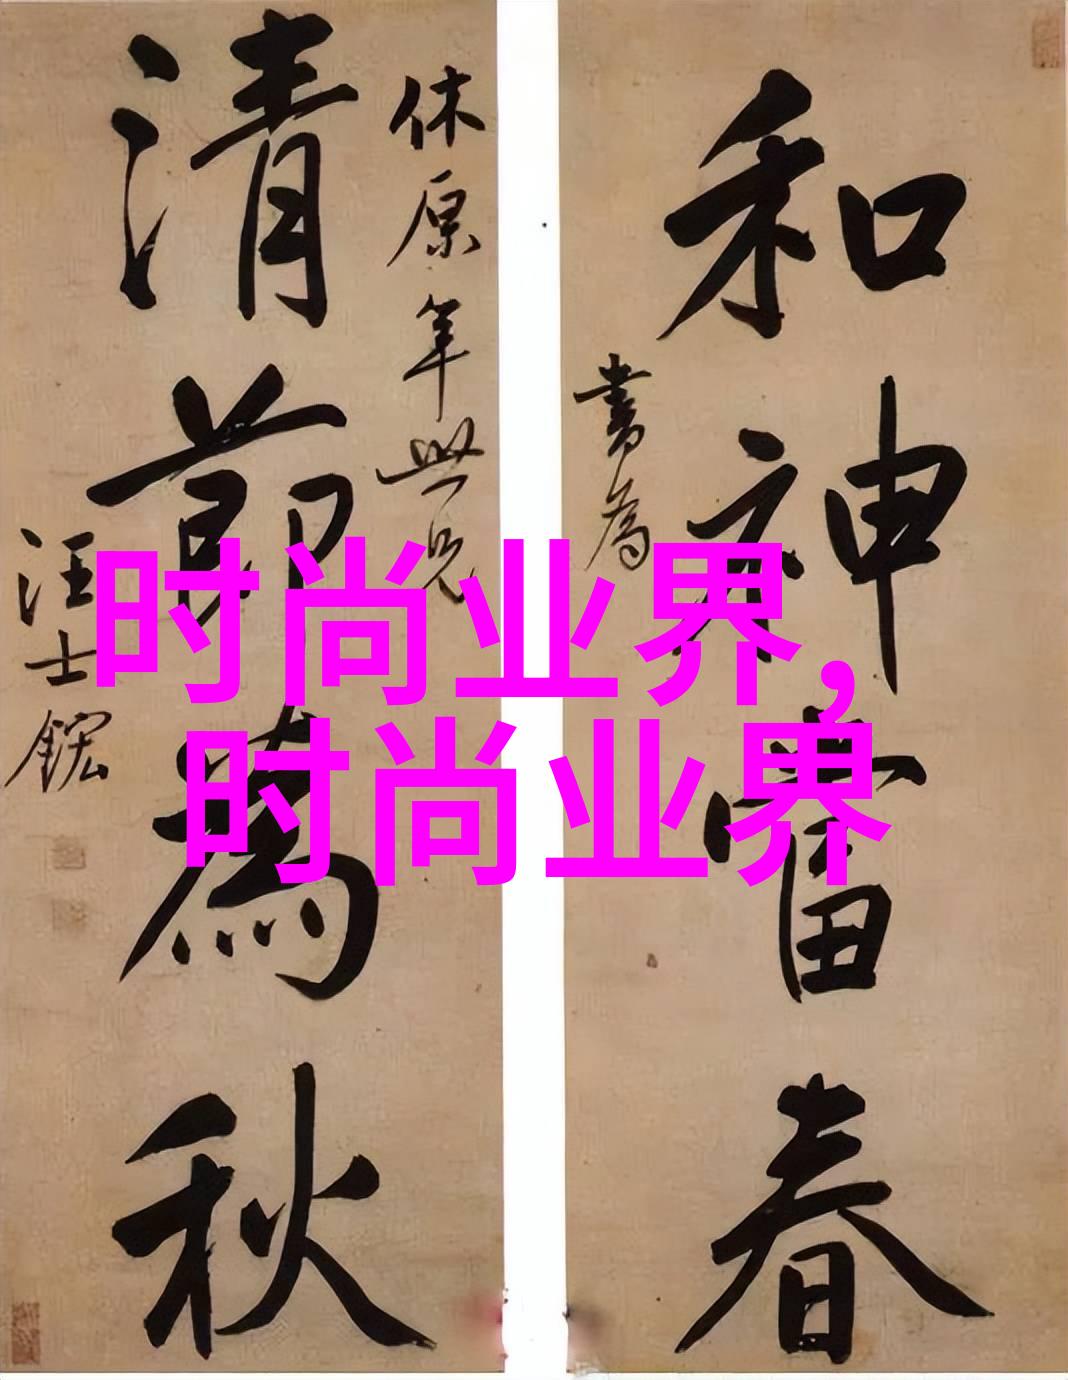 和神當春
書為
休原年世兄
清節為秋
汪士鋐
时尚业界，
时尚业界